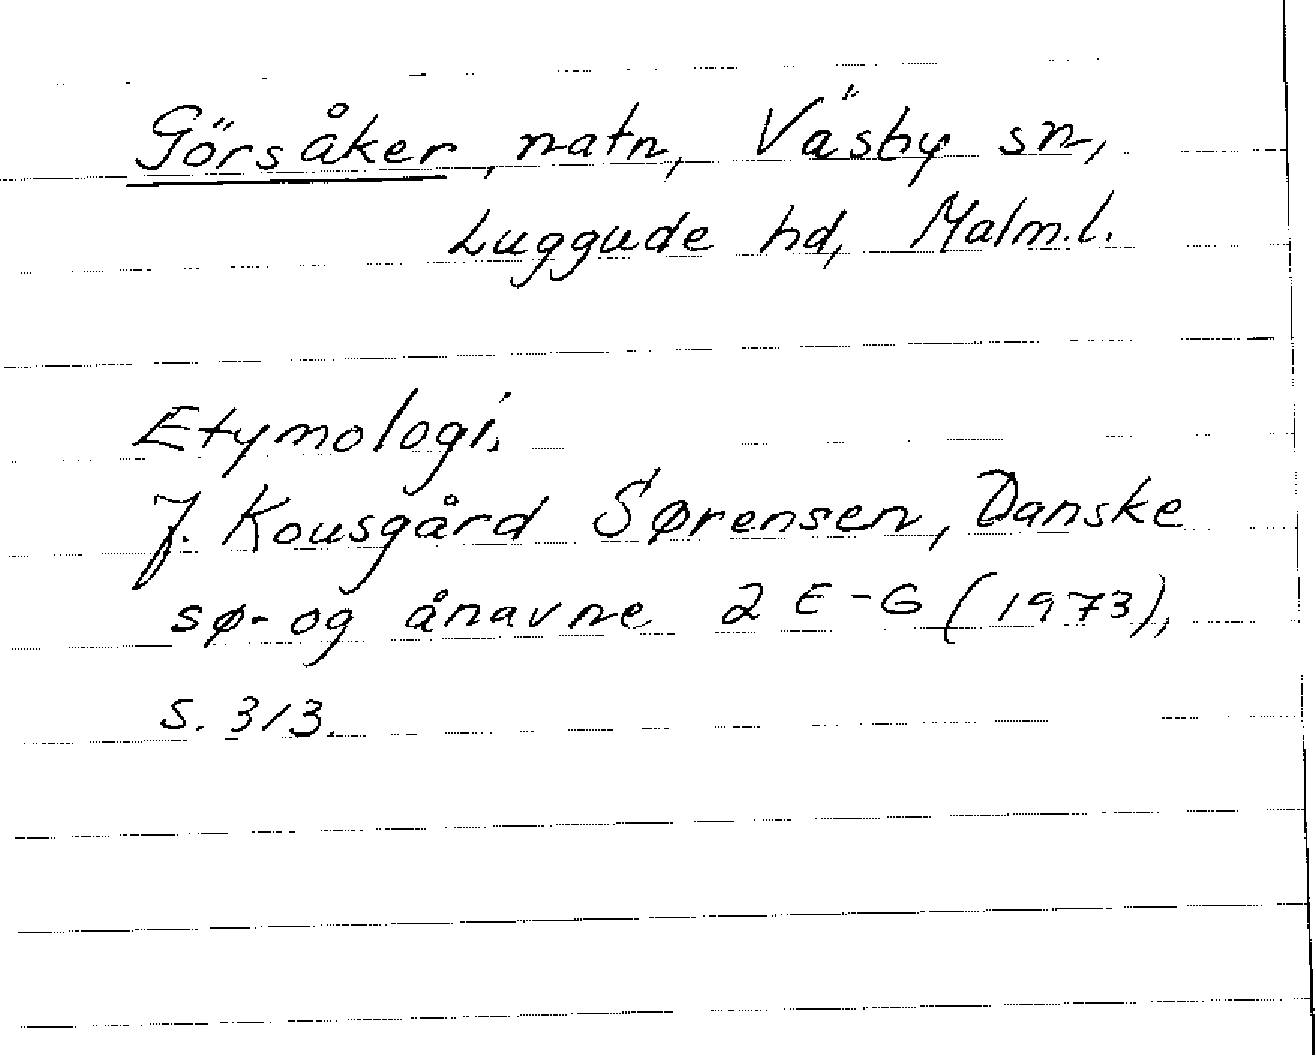 Görsåker, natn, Väsby sn,
Luggude hd, Malm.l.
Etymologi.
J. Kousgård Sørensen, Danske
sø- og ånavne 2 E-G (1973),
s. 313.